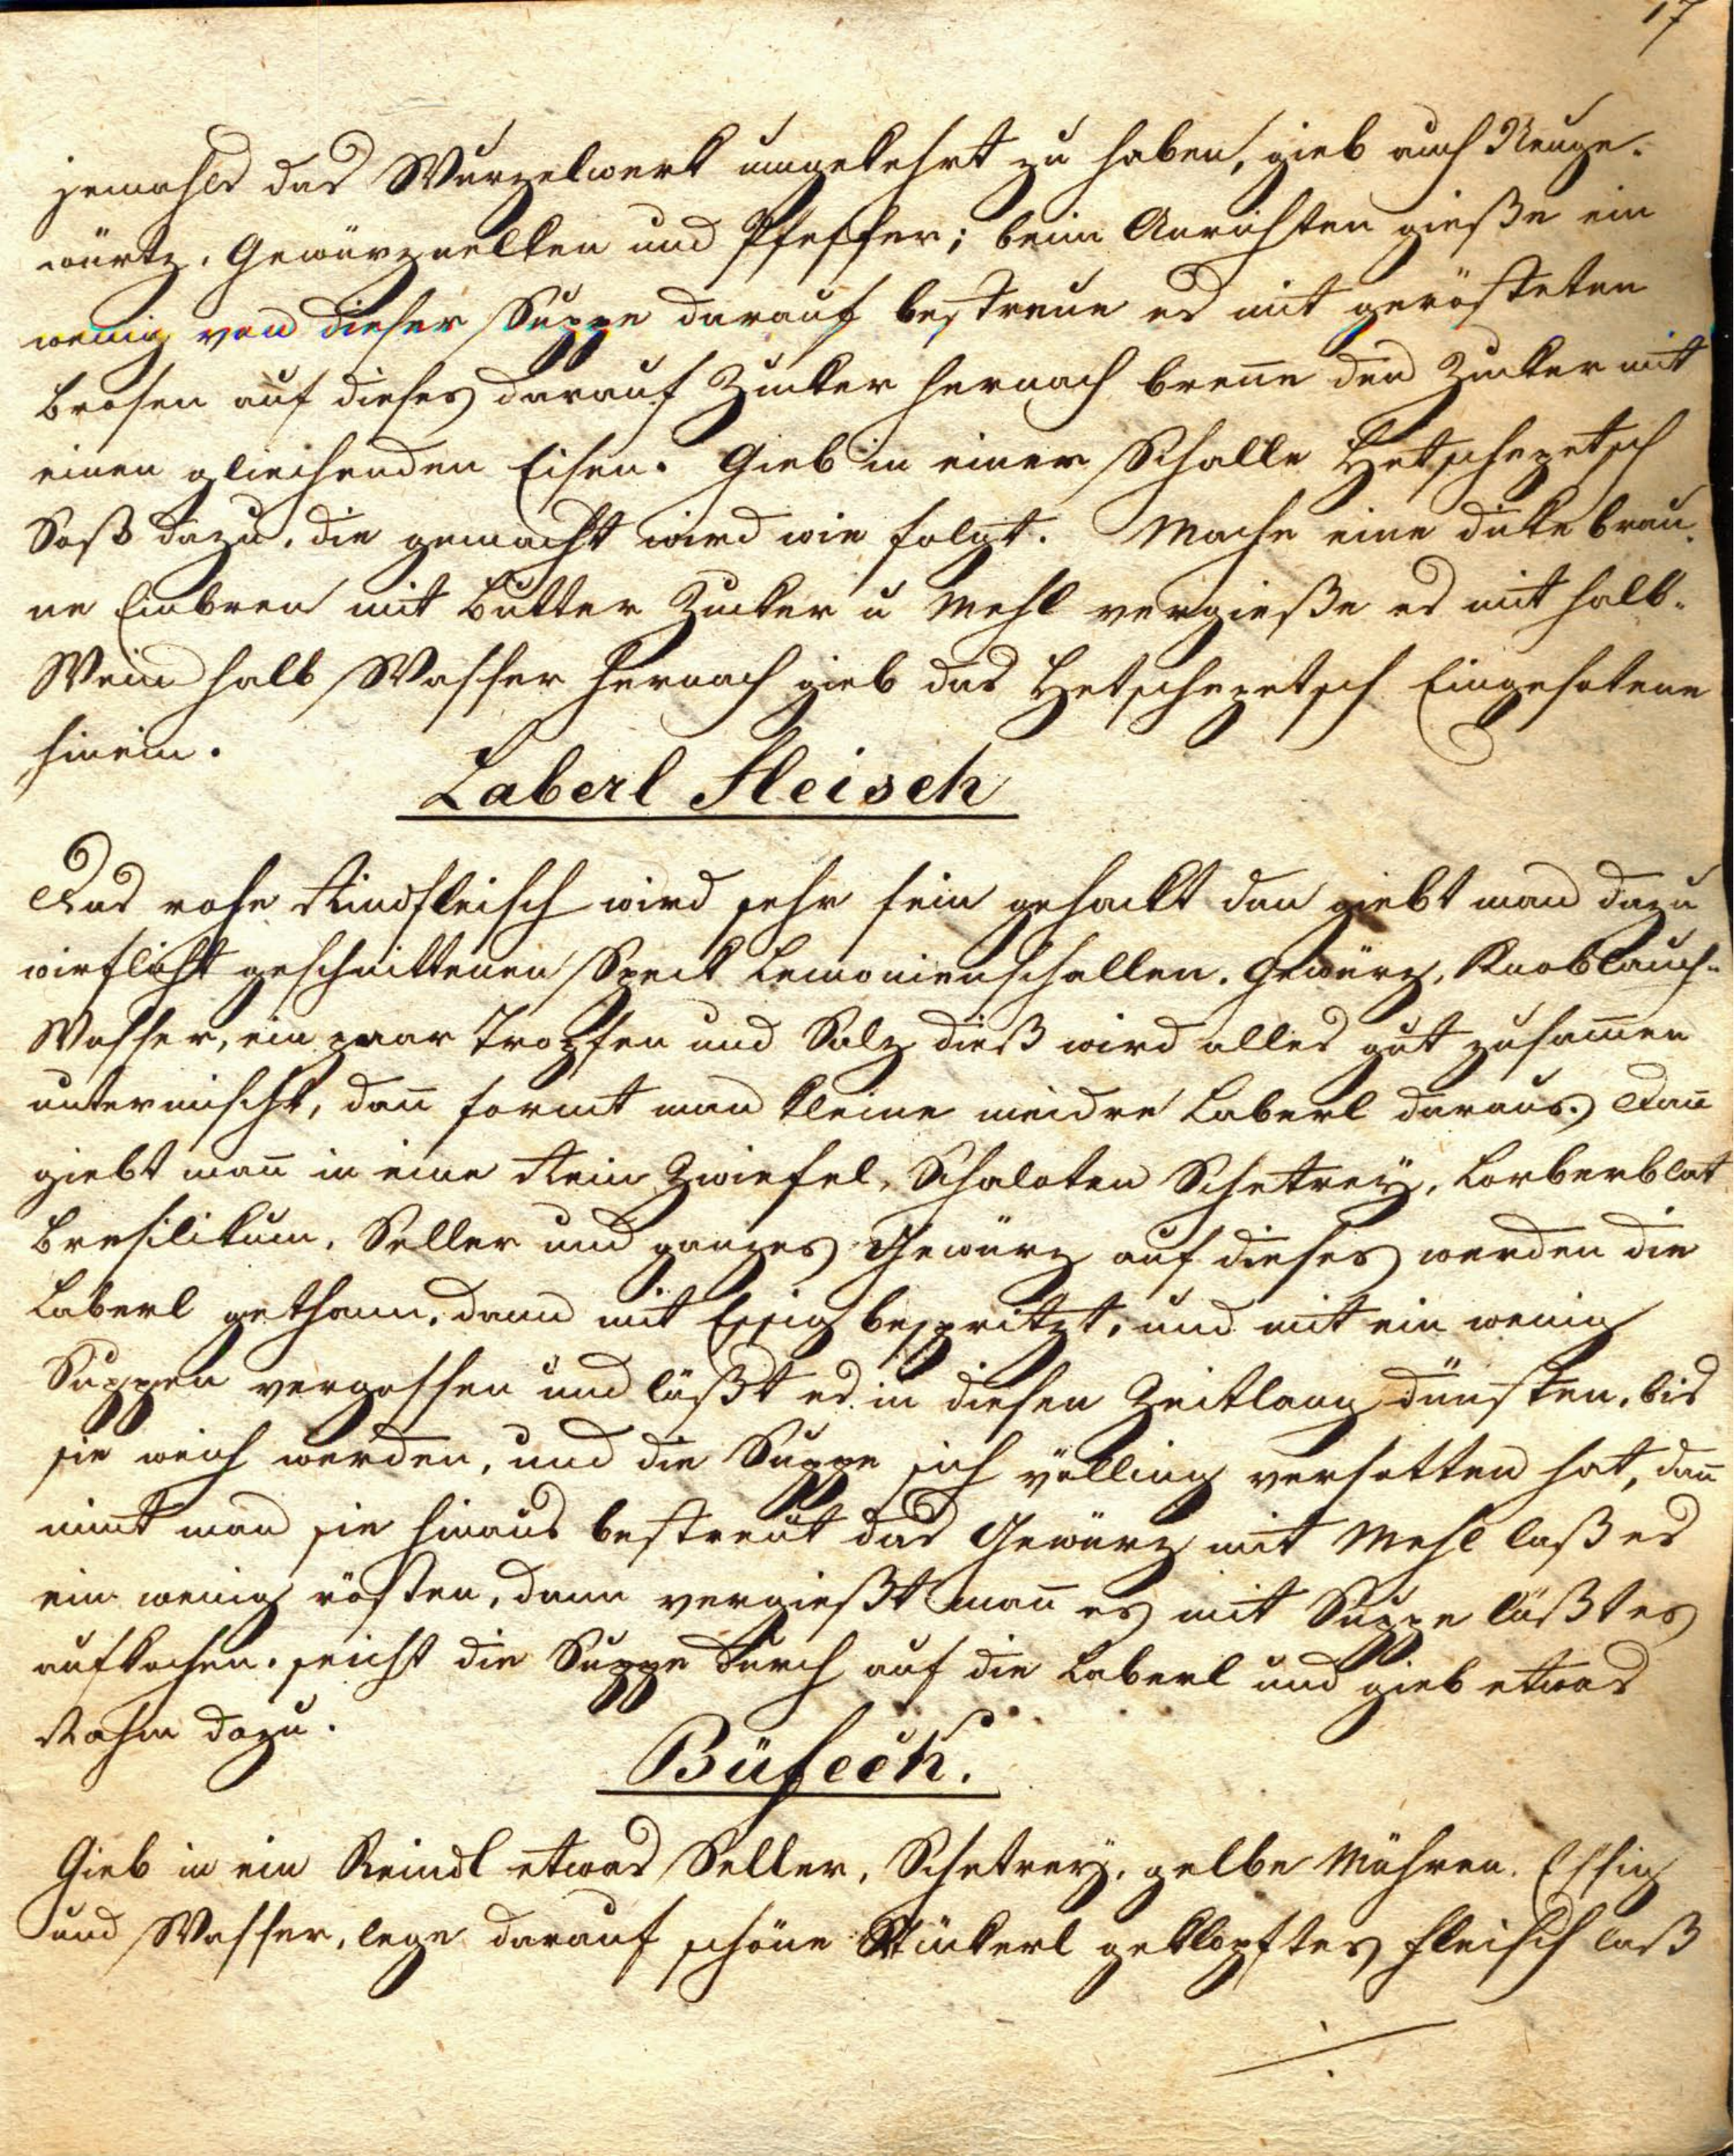 17
jemahls das Wurzelwerk umgekehrt zu haben, gieb auch Neuge-
würtz, Gewürznelken und Pfeffer; beim Anrichten gieße ein
wenig von dieser Suppe darauf bestreue es mit gerösteten
Brosen auf dieses darauf Zucker hernach breñe den Zucker mit
einen glieichenden Eisen. Gieb in einer Schalle Hetschepetsch
Soß dazu, die gemacht wird wie folgt. Mache eine dicke brau-
ne Einbren mit Butter Zucker u Mehl vergieße es mit halb-
Wein halb Wasser hernach gieb das Hetschepetsch Eingesotene
hinein.
Laberl Fleisch
Das rohe Rindfleisch wird sehr fein gehackt dan giebt man dazu
wirflicht geschnittenen Speck Lemonienschallen, Gewürz, Knoblauch-
Wasser, ein paar Tropfen und Salz dieß wird alles gut zusam̃en
untermischt, dañ formt man kleine niedre Laberl daraus. Dañ
giebt mañ in eine Rein Zwiefel, Schaloten Schetrey, Lorberblat
Bresilikum, Seller und ganzes Gewürz auf dieses werden die
Laberl gethann, dann mit Essig bespritzt, und mit ein wenig
Suppen vergossen und läßt es in diesen Zeitlang dünsten, bis
sie weich werden, und die Suppe sich välling versotten hat, dañ
nimt man sie hinaus bestreut das Gewürz mit Mehl laß es
ein wenig rösten, dann vergießt mañ es mit Suppe läßt es
aufkochen. seicht die Suppe durch auf die Laberl und gieb etwas
Rahm dazu.
Büfeek.
Gieb in ein Reindl etwas Seller, Schetrey, gelbe Mähren, Essig
und Wasser, lege darauf schöne Stückerl geklopftes Fleisch laß